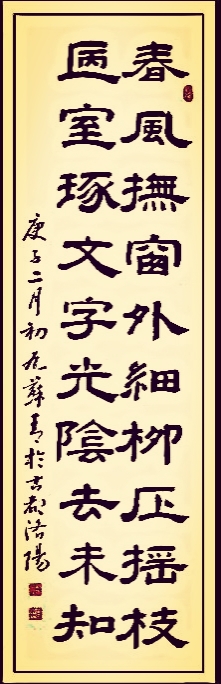 春風撫窗外細柳正搖枝
陋室琢文字光陰去未知
庚子二月初九蘇青於古都洛陽